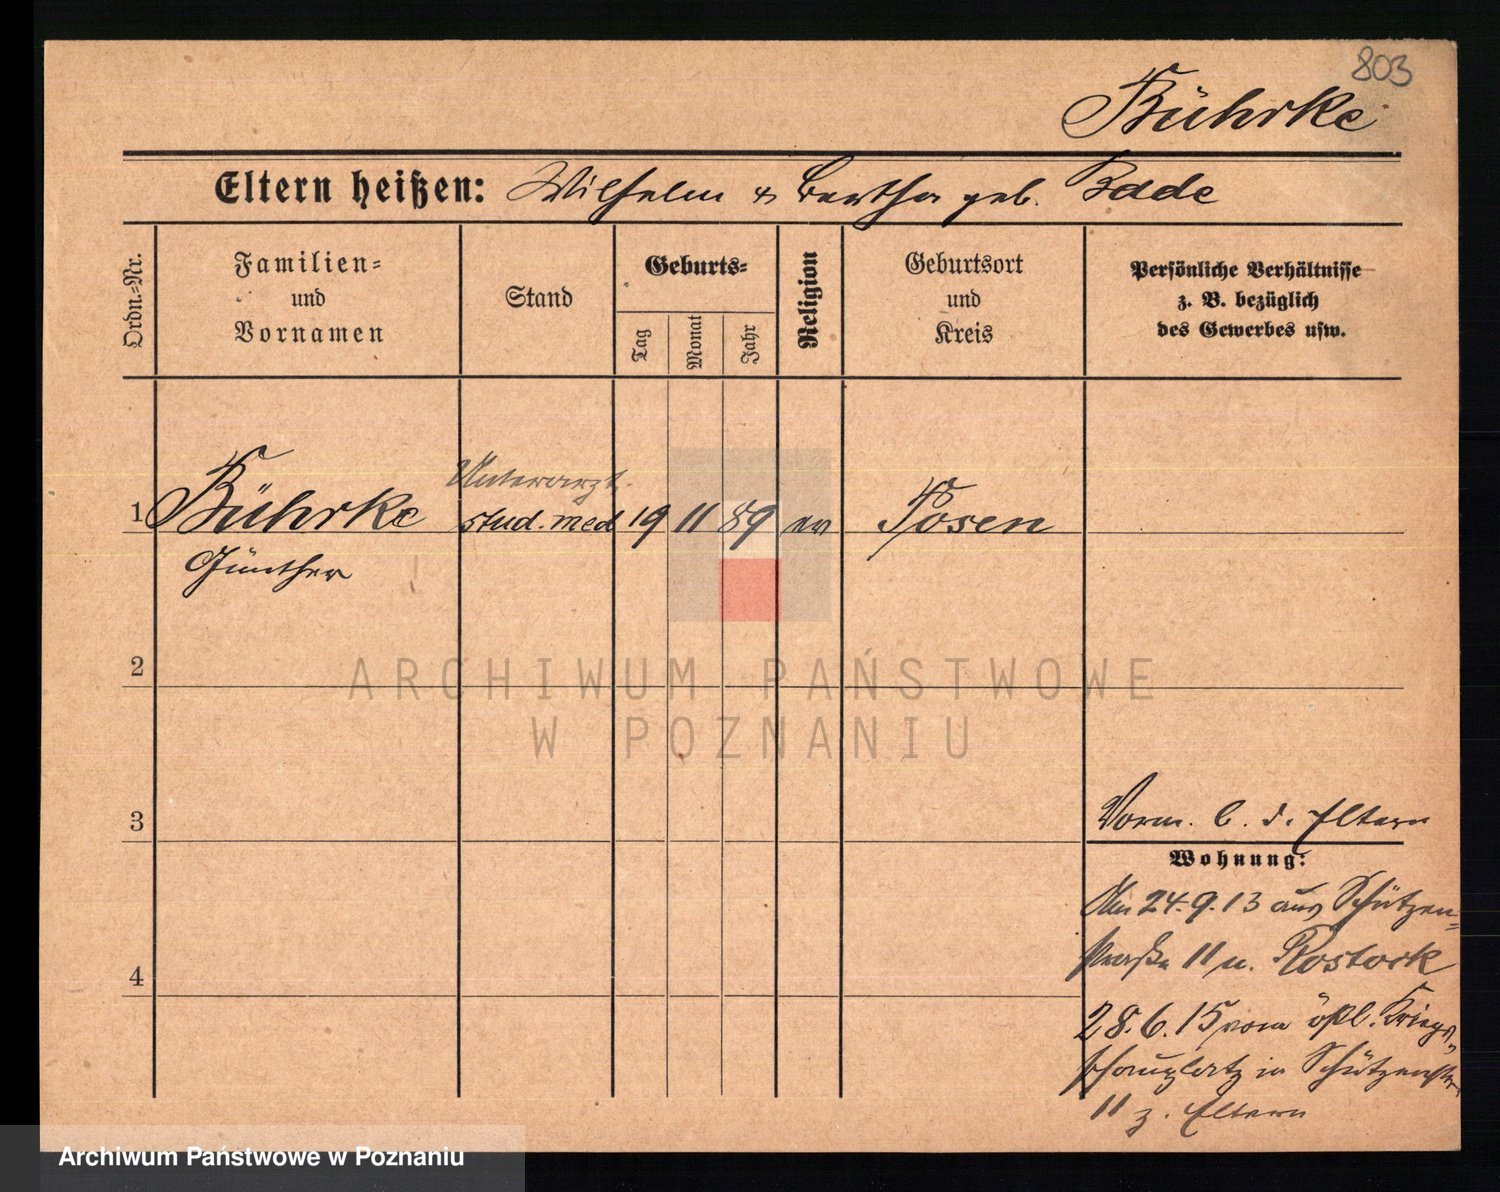 803
Bührke
Eltern heißen: Wilhelm & Bertha geb. Bade
Ordn.-Nr.
Familien- und Vornamen
Stand
Geburts-
Tag
Monat
Jahr
Religion
Geburtsort und Kreis
Persönliche Verhältnisse z. B. bezüglich des Gewerbes usw.
Unterarzt
1 Bührke stud. med 19 11 89 ev Posen
Günther
2
ARCHIWUM PAŃSTWOWE
W POZNANIU
3
Vorm. b. d. Eltern
Wohnung:
Am 24.9.13 aus Schützen-
straße 11 n. Rostock
4
28.6.15 vom östl. Kriegs-
schauplatz in Schützenstr.
11 z. Eltern
Archiwum Państwowe w Poznaniu